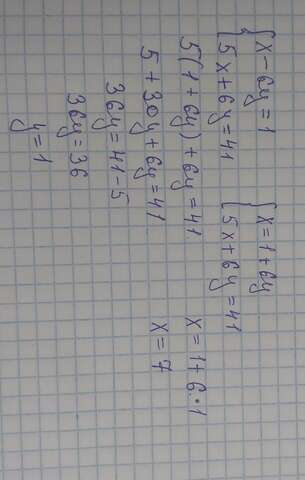 { x - 6y = 1
{ 5x + 6y = 41
{ x = 1 + 6y
{ 5x + 6y = 41
5(1 + 6y) + 6y = 41
5 + 30y + 6y = 41
36y = 41 - 5
36y = 36
y = 1
x = 1 + 6 · 1
x = 7